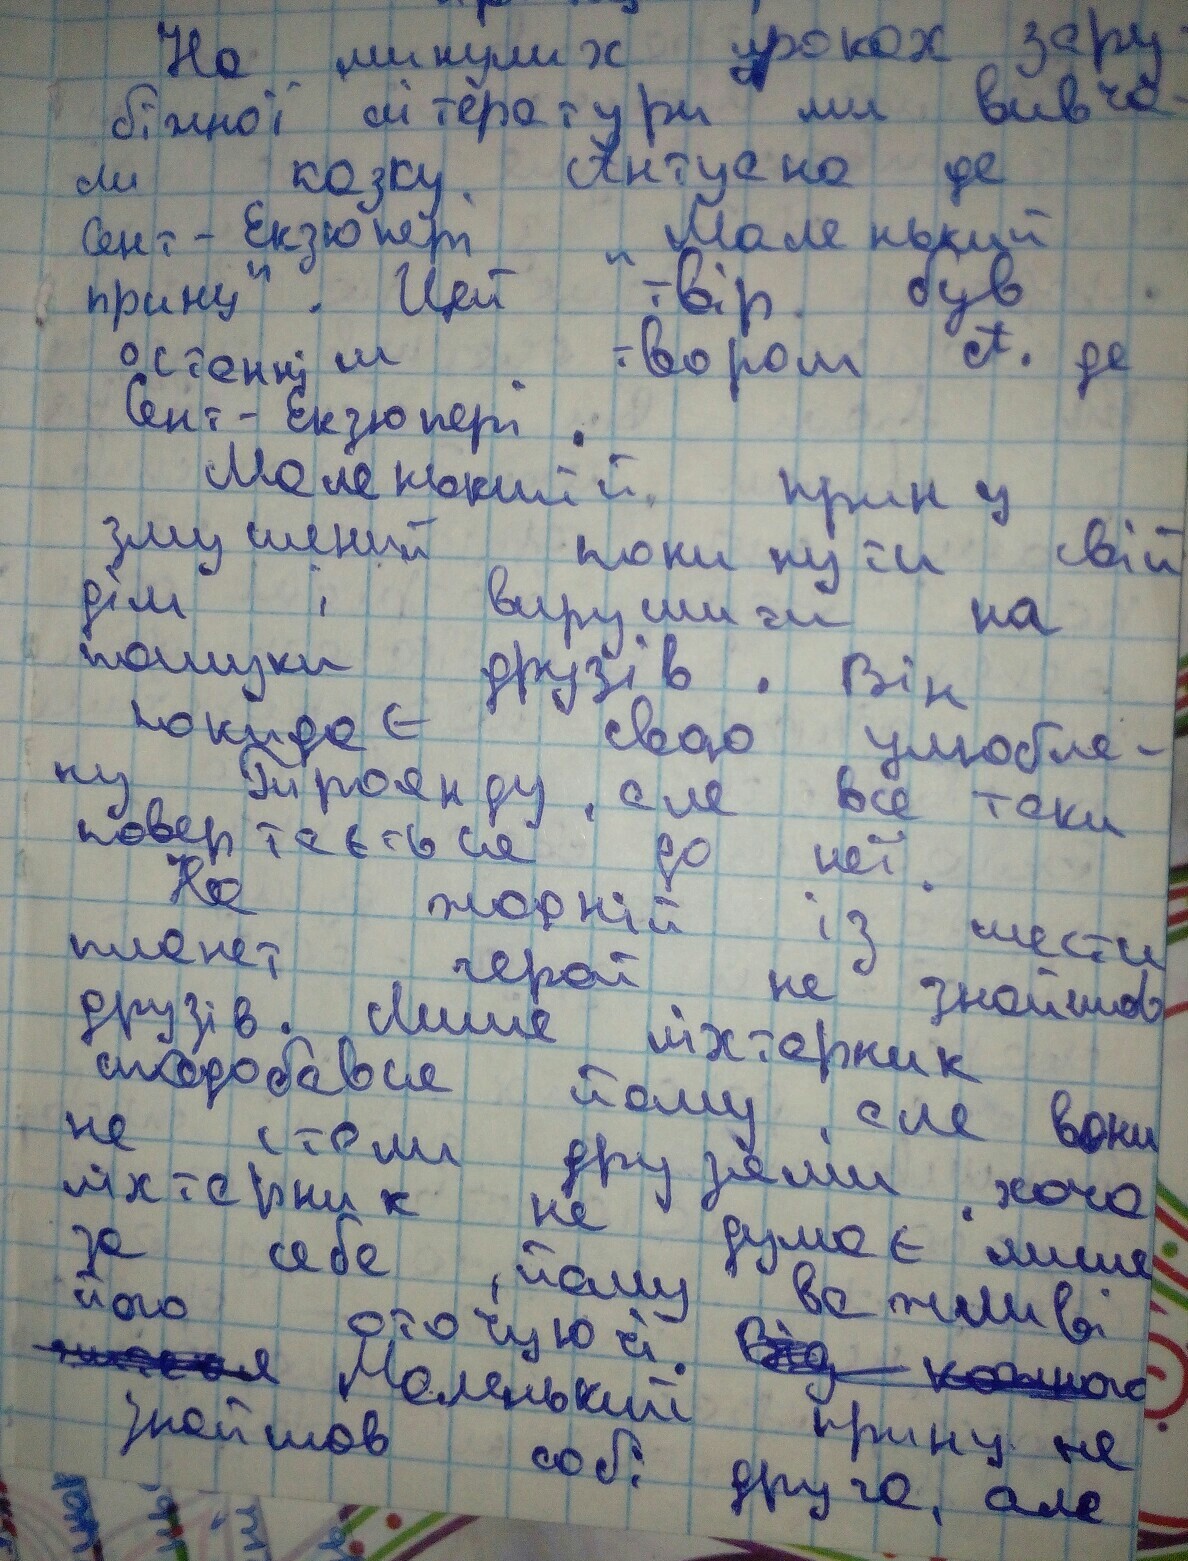 На минулих уроках зару-
біжної літератури ми вивча-
ли казку Антуана де
Сент-Екзюпері "Маленький
принц". Цей твір був
останнім твором А. де
Сент-Екзюпері.
Маленький принц
змушений покинути свій
дім і вирушити на
пошуки друзів. Він
покидає свою улюбле-
ну троянду, але все таки
повертається до неї.
На жодній із шести
планет герой не знайшов
друзів. Лише ліхтарник
сподобався йому, але вони
не стали друзями, хоча
ліхтарник не думає лише
за себе, йому важливі
його оточуючі. Від кожного
Маленький принц не
знайшов собі друга, але